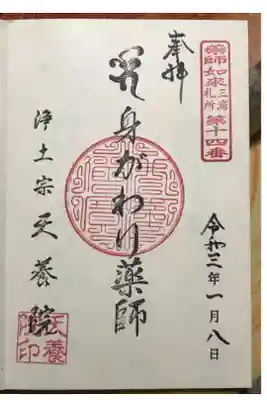 薬師如来
三浦
札所
第十四番
奉拝
令和三年一月八日
身がわり薬師
浄土宗天養院